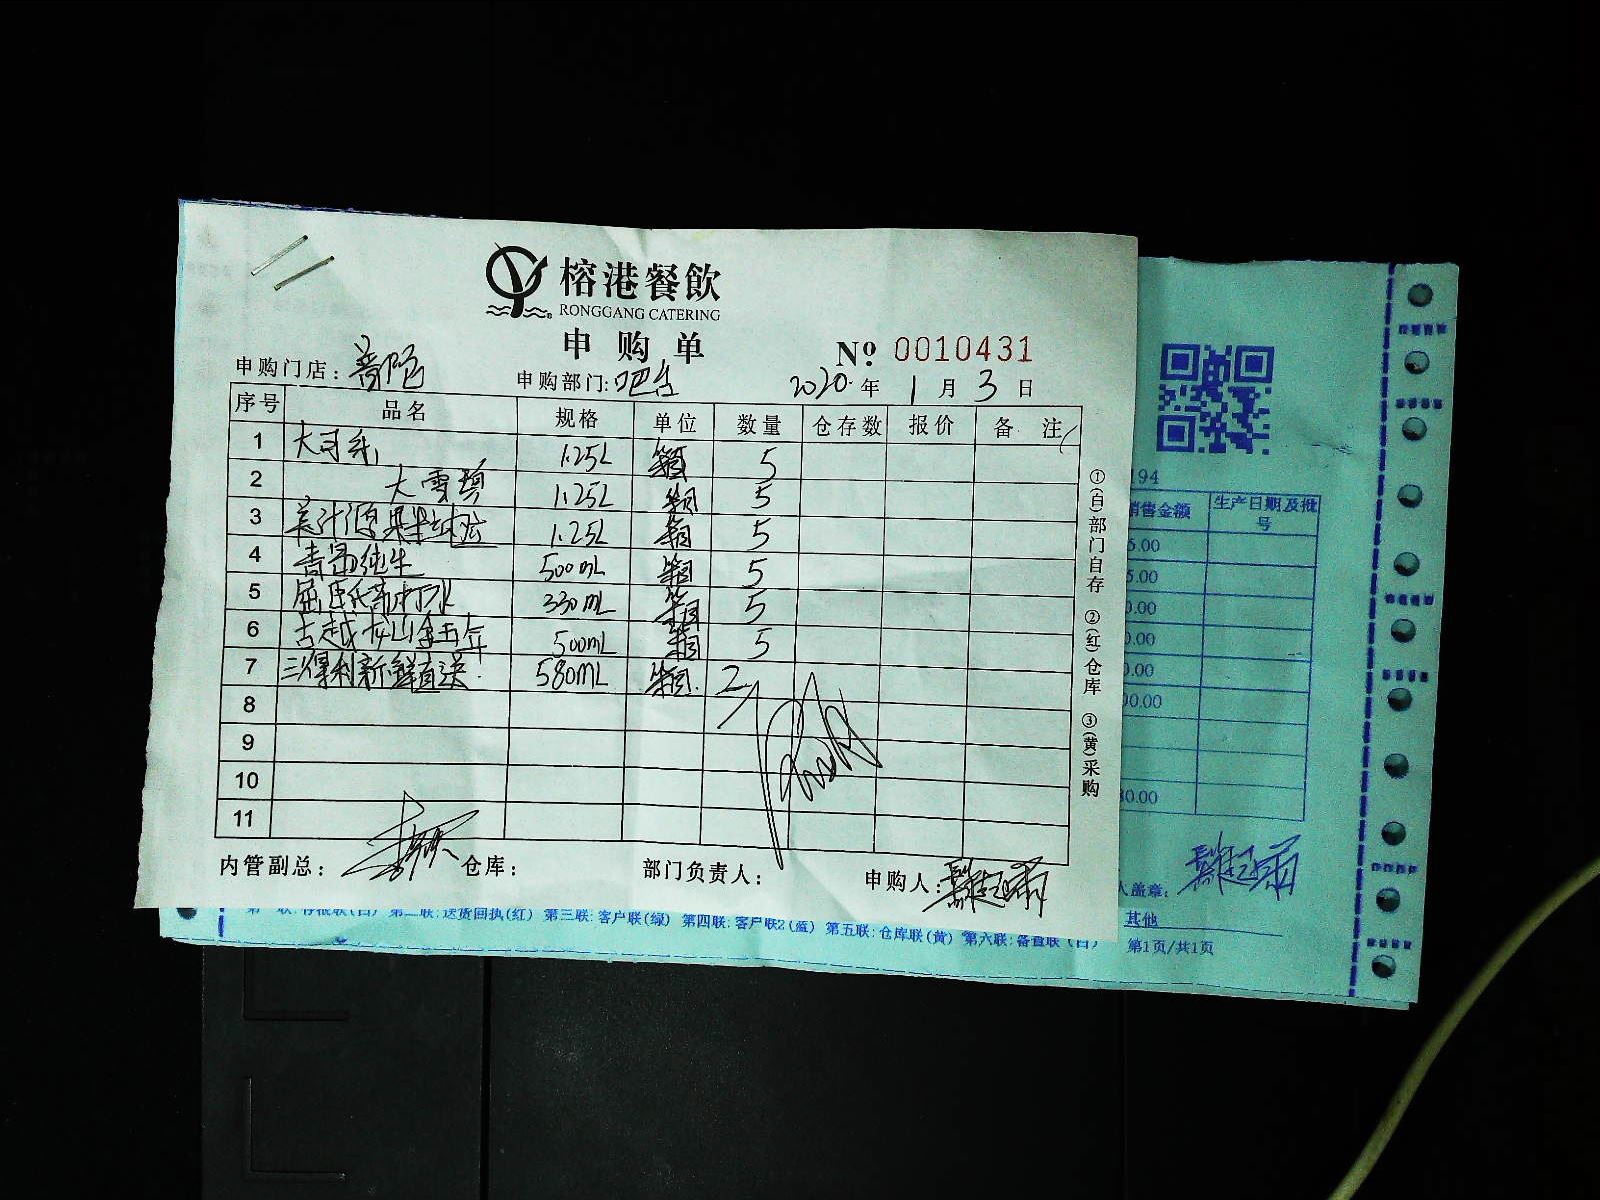 榕港餐飲
RONGGANG CATERING
申购单
№ 0010431
申购门店:普陀 申购部门:吧台 2020年1月3日
序号 品名 规格 单位 数量 仓存数 报价 备注
1 大可乐 1.25L 箱 5
2 大雪碧 1.25L 箱 5
3 美汁源果粒橙 1.25L 箱 5
4 青岛纯生 500mL 箱 5
5 屈臣氏苏打水 330mL 箱 5
6 古越龙山金五年 500mL 箱 5
7 三得利新鲜直送 580mL 箱 2
8
9
10
11
内管副总: 仓库: 部门负责人: 申购人:
①(白)部门自存 ②(红)仓库 ③(黄)采购
194
销售金额 生产日期及批号
5.00
5.00
0.00
0.00
0.00
00.00
80.00
人盖章:
其他
第一联:存根联(白) 第二联:送货回执(红) 第三联:客户联(绿) 第四联:客户联2(蓝) 第五联:仓库联(黄) 第六联:备查联(白) 第1页/共1页